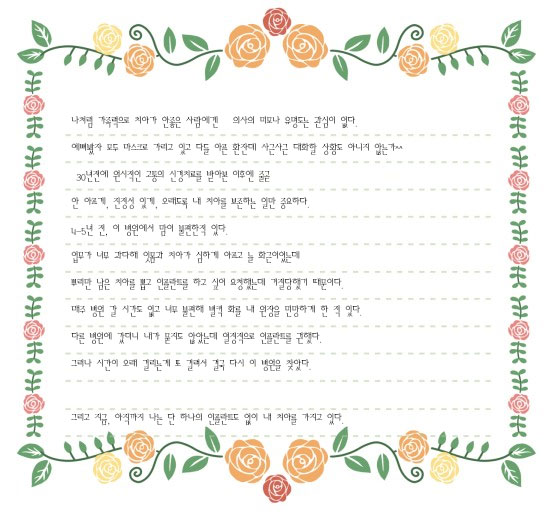 나처럼 가족력으로 치아가 안좋은 사람에겐 의사의 미모나 유명도는 관심이 없다.
예뻐봤자 모두 마스크로 가리고 있고 다들 아픈 환잔데 사근사근 대화할 상황도 아니지 않는가^^
30년전에 원시적인 고통의 신경치료를 받아본 이후엔 줄곧
안 아프게, 진정성 있게, 오래도록 내 치아를 보존하는 일만 중요하다.
4-5년 전, 이 병원에서 맘이 불편한적 있다.
업무가 너무 과다해 잇몸과 치아가 심하게 아프고 늘 화근이었는데
뿌리만 남은 치아를 뽑고 인플란트를 하고 싶어 요청했는데 거절당했기 때문이다.
매주 병원 갈 시가도 없고 너무 불편해 벌컥 화를 내 원장을 민망하게 한 적 있다.
다른 병원에 갔더니 내가 묻지도 않았는데 열정적으로 인플란트를 권했다.
그러나 시간이 오래 걸리는게 또 걸려서 결국 다시 이 병원을 찾았다.
그리고 지금, 아직까지 나는 단 하나의 인플란트도 없이 내 치아를 가지고 있다.